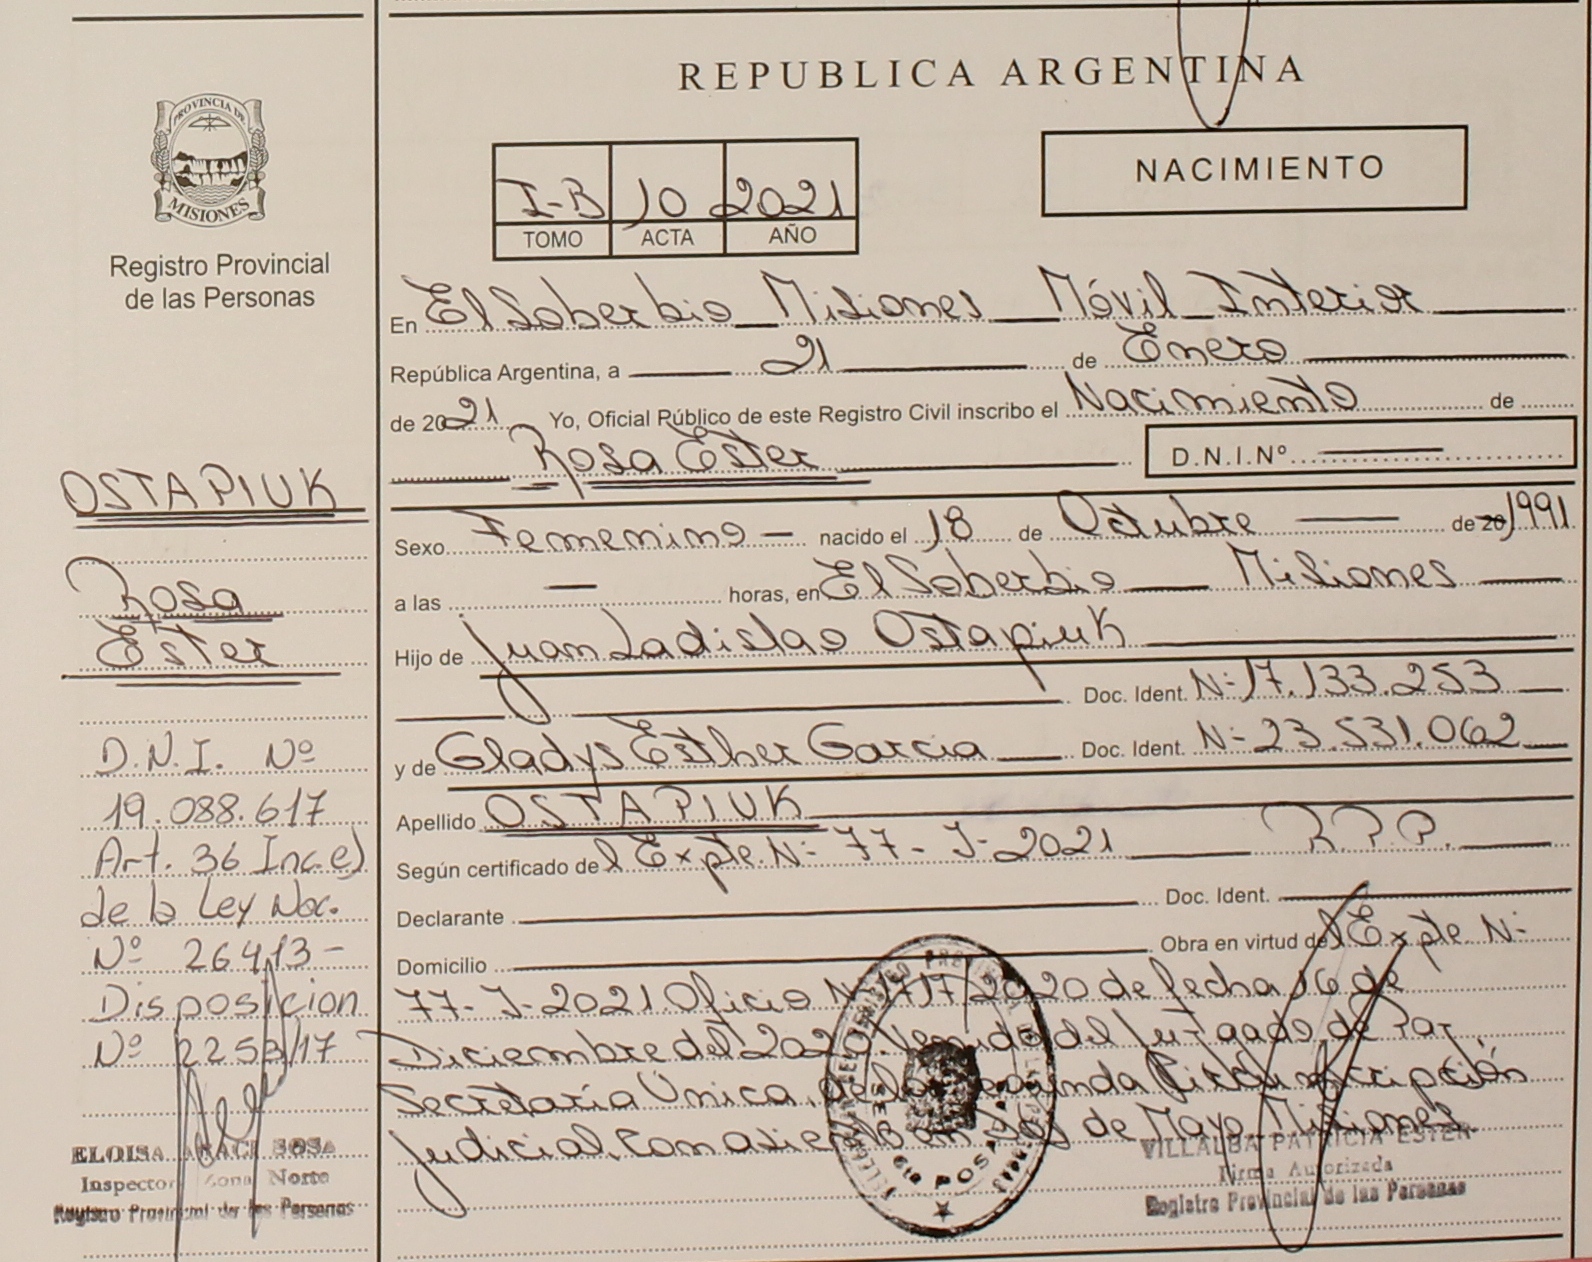 REPUBLICA ARGENTINA
PROVINCIA DE
MISIONES
Registro Provincial
de las Personas
NACIMIENTO
I-B 10 2021
TOMO ACTA AÑO
En El Soberbio Misiones Móvil Interior
República Argentina, a 21 de Enero
de 2021 Yo, Oficial Público de este Registro Civil inscribo el Nacimiento de
Rosa Ester D.N.I.Nº
Sexo Femenino nacido el 18 de Octubre de 20 1991
a las horas, en El Soberbio Misiones
Hijo de Juan Ladislao Ostapiuk
Doc. Ident. Nº 17.133.253
y de Gladys Esther Garcia Doc. Ident. Nº 23.531.062
Apellido OSTAPIUK
Según certificado del Expte. Nº 77-J-2021 R.P.P.
Declarante Doc. Ident.
Domicilio Obra en virtud del Expte Nº
77-J-2021. Oficio Nº 1717/2020 de fecha 16 de
Diciembre del 2020. Venido del Juzgado de Paz
Secretaría Única, de la Segunda Circunscripción
Judicial, con asiento en 25 de Mayo Misiones.
OSTAPIUK
Rosa
Ester
D.N.I. Nº
19.088.617
Art. 36 Inc. e)
de la Ley Nac.
Nº 26413-
Disposicion
Nº 2253/17
ELOISA ARACI SOSA
Inspector Zona Norte
Registro Provincial de las Personas
VILLALBA PATRICIA ESTER
Firma Autorizada
Registro Provincial de las Personas